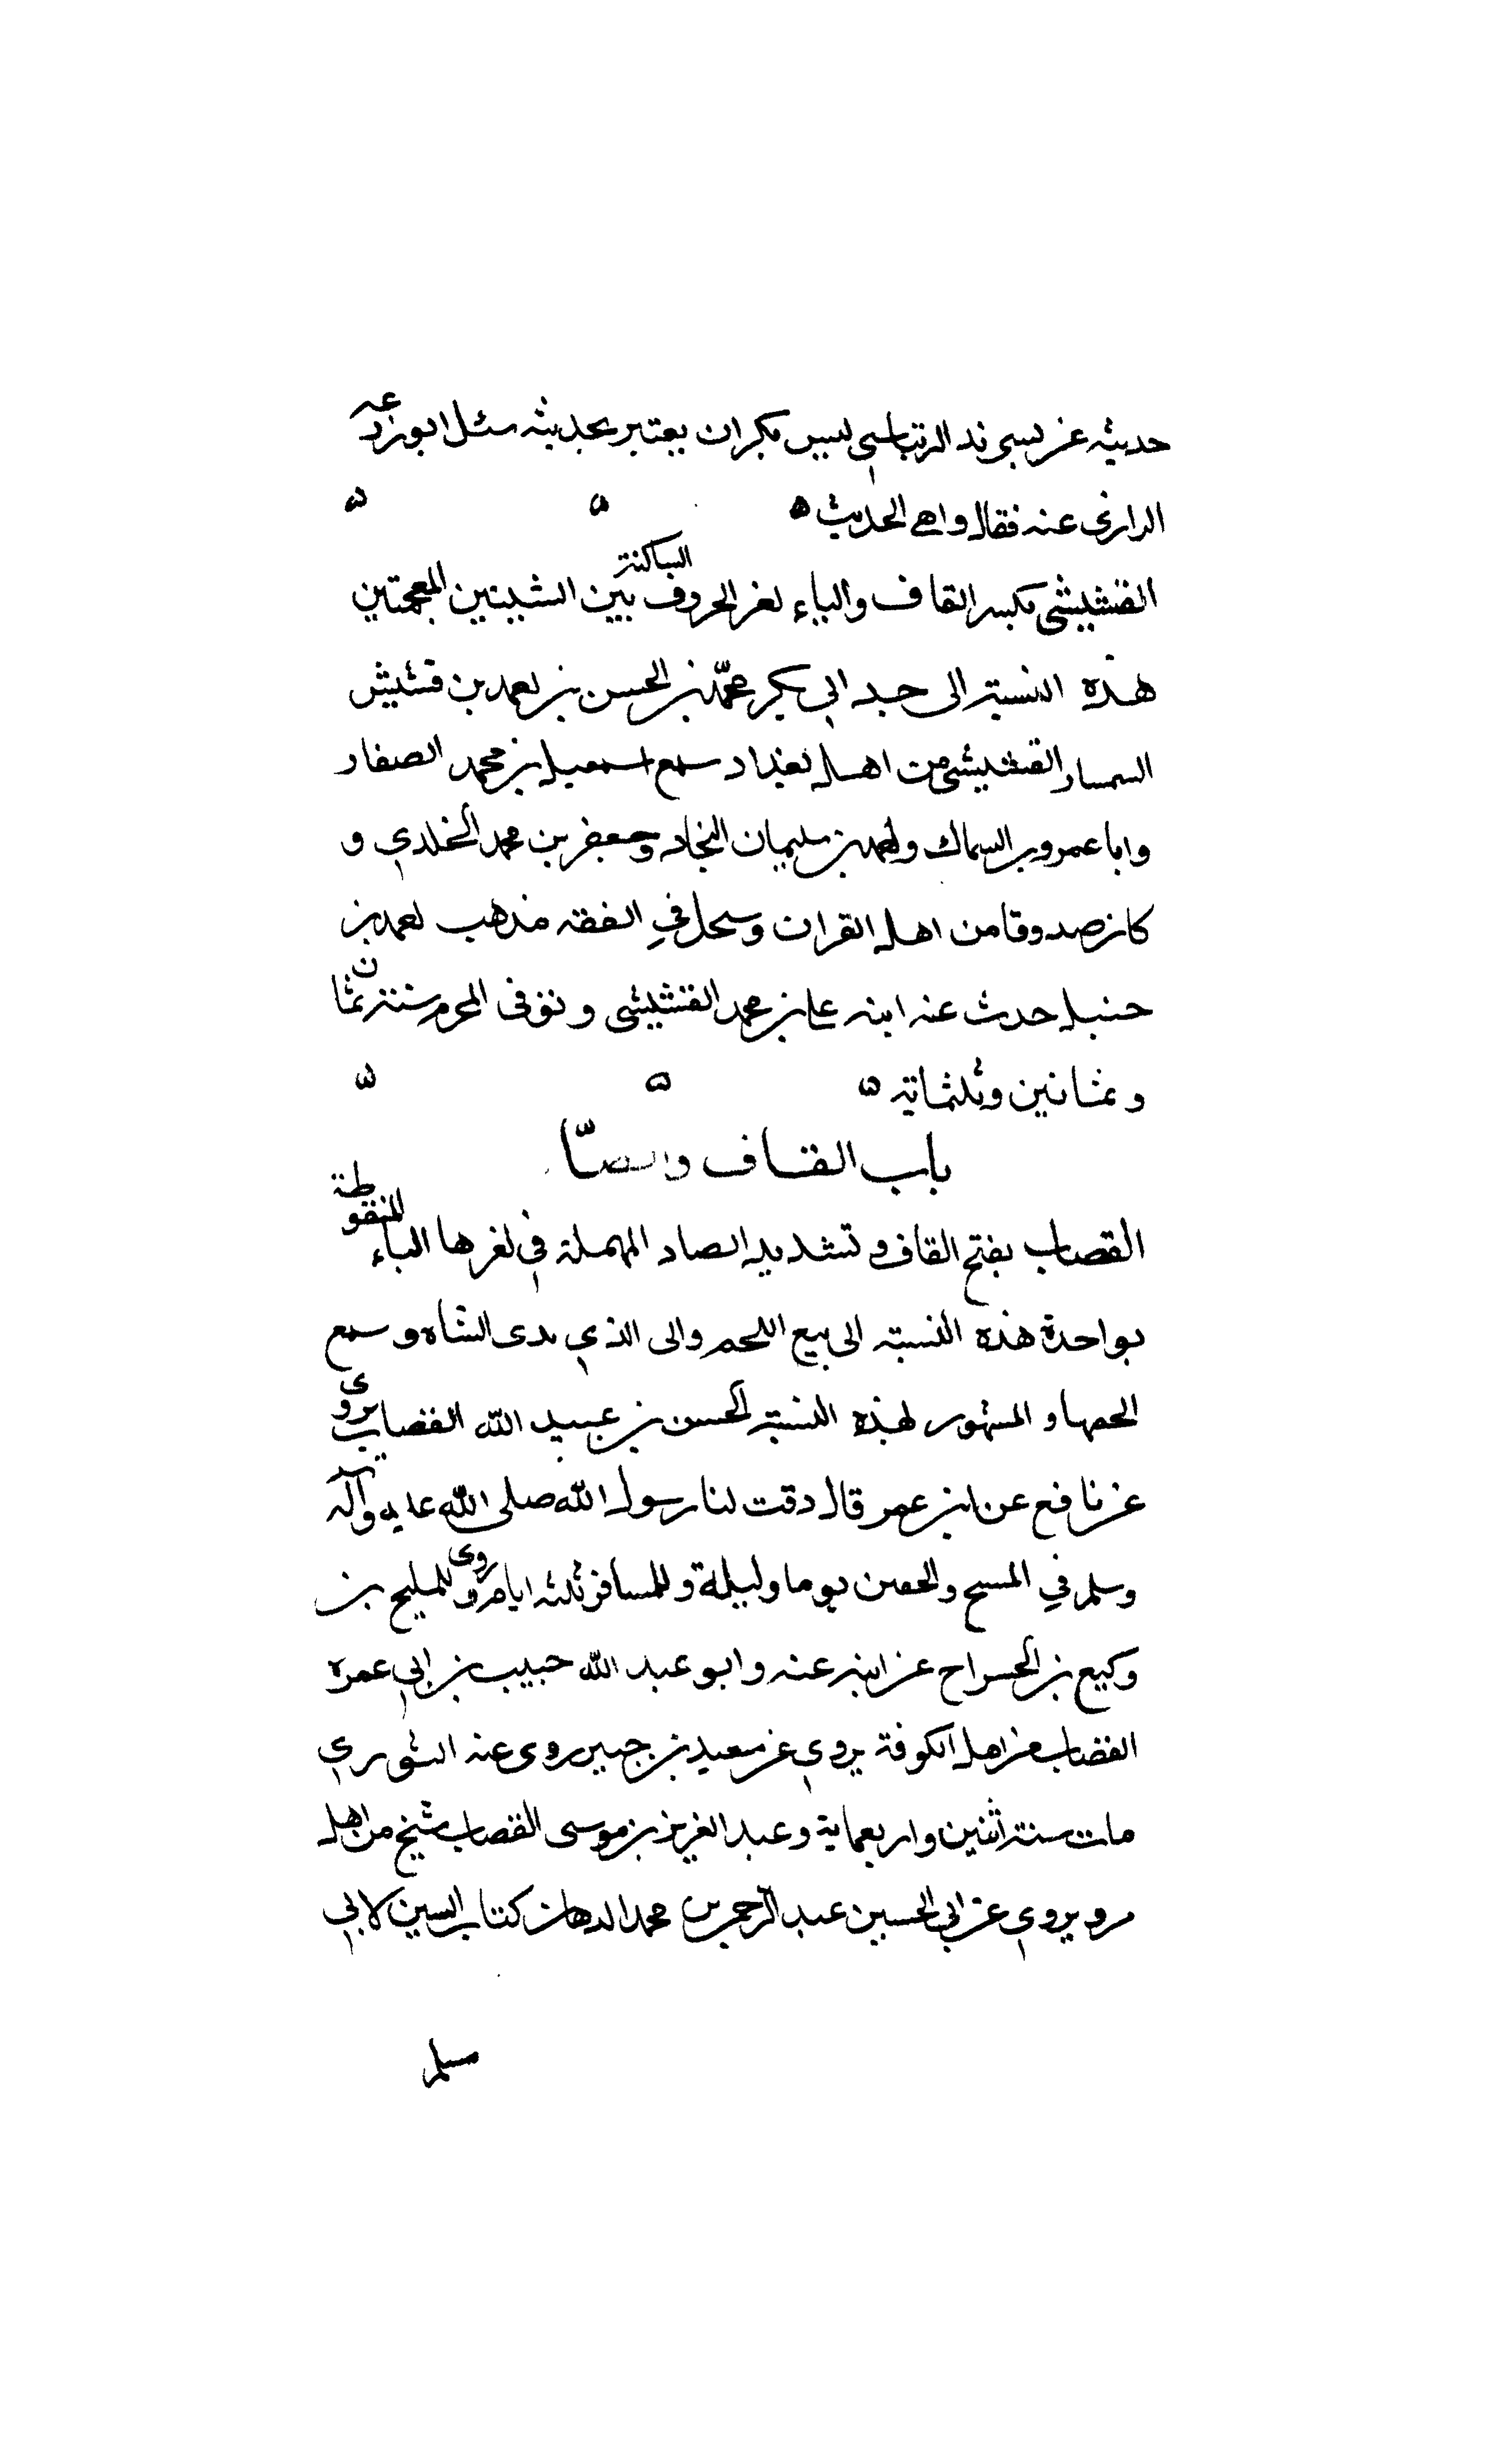 حديثه عن ليس بكران يعتبر بحديثه سئل ابو زرعة
الرازى عنه فقال واهى الحديث ه
القشيشى بكسر القاف والياء اخر الحروف الساكنة بين الشينين المعجمتين
هذه النسبة الى جد ابي بكر محمد بن الحسن بن احمد بن قشيش
السمسار القشيشى من اهل بغداد سمع اسمعيل بن محمد الصفار
وابا عمرو بن السماك واحمد بن سليمان النجاد وجعفر بن محمد الخلدي و
كان صدوقا من اهل القران في الفقه مذهب احمد بن
حنبل حدث عنه ابنه على بن محمد القشيشى وتوفى في المحرم سنة ثمان
وثمانين وثلثماية
باب القاف والصا
القصاب بفتح القاف وتشديد الصاد المهملة في اخرها الباء المنقوطة
بواحدة هذه النسبة الى بيع اللحم والى الذي الشاه و
والمشهور بهذه النسبة الحسن بن عبيد الله القصاب يروى
عن نافع عن ابن عمر قال وقت لنا رسول الله صلى الله عليه وآله
وسلم في المسح والحضر يوما وليلة وللمسافر ثلثه ايام روى المليح بن
وكيع بن الجراح عن ابيه عنه وابو عبد الله حبيب بن ابي عمرة
القصاب من اهل الكوفة يروي عن سعيد بن جبير روى عنه الثوري
مات سنة اثنين واربعماية وعبد العزيز بن موسى القصاب شيخ من اهل
مرو يروي عن ابي الحسين عبد الرحمن بن محمد الدهان كتاب السين لابي
مسلم